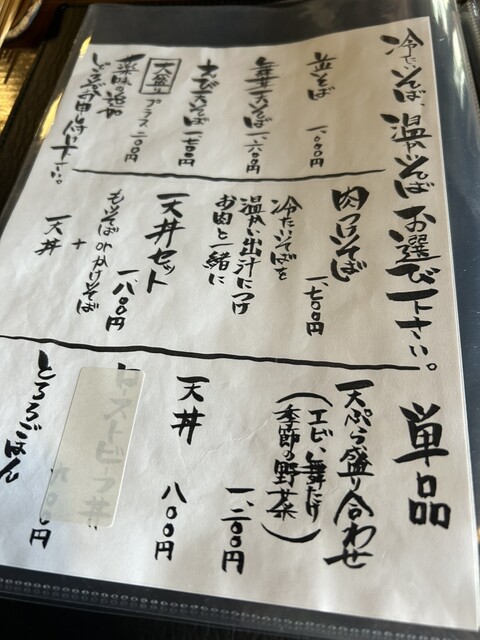 冷たいそば、温かいそばお選び下さい。
並そば
一、〇〇〇円
舞茸天そば
一、六〇〇円
えび天そば
一、七〇〇円
大盛り
プラス二〇〇円
薬味の追加
どうぞお申し付け下さい。
肉つけそば
一、七〇〇円
冷たいそばを
温かい出汁につけ
お肉と一緒に
天丼セット
一、八〇〇円
もりそばorかけそば
+
天丼
単品
天ぷら盛り合わせ
(エビ、舞たけ
季節の野菜)
一、二〇〇円
天丼
八〇〇円
ローストビーフ丼
とろろごはん